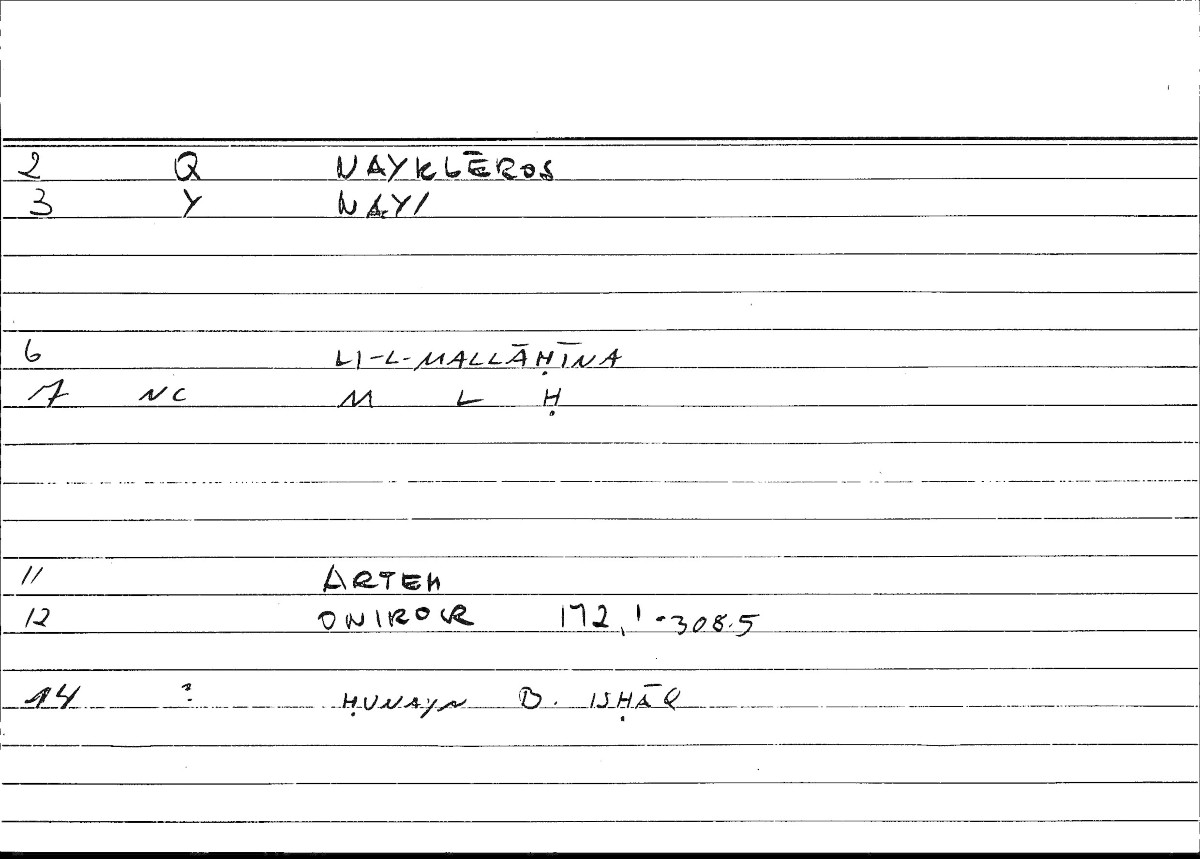 2 Q NAYKLĒROS
3 Y NAY/
6 LI-L-MALLĀḤĪNA
7 NC M L Ḥ
11 ARTEM
12 ONIROCR 172,1-308.5
14 ? ḤUNAYN B. ISḤĀQ